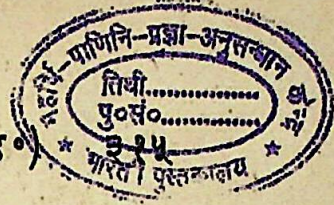 महर्षि-पाणिनि-प्रज्ञा-अनुसन्धान
तिथी..............
पु०सं०..............
३१५
* भारती पुस्तकालय *
०)